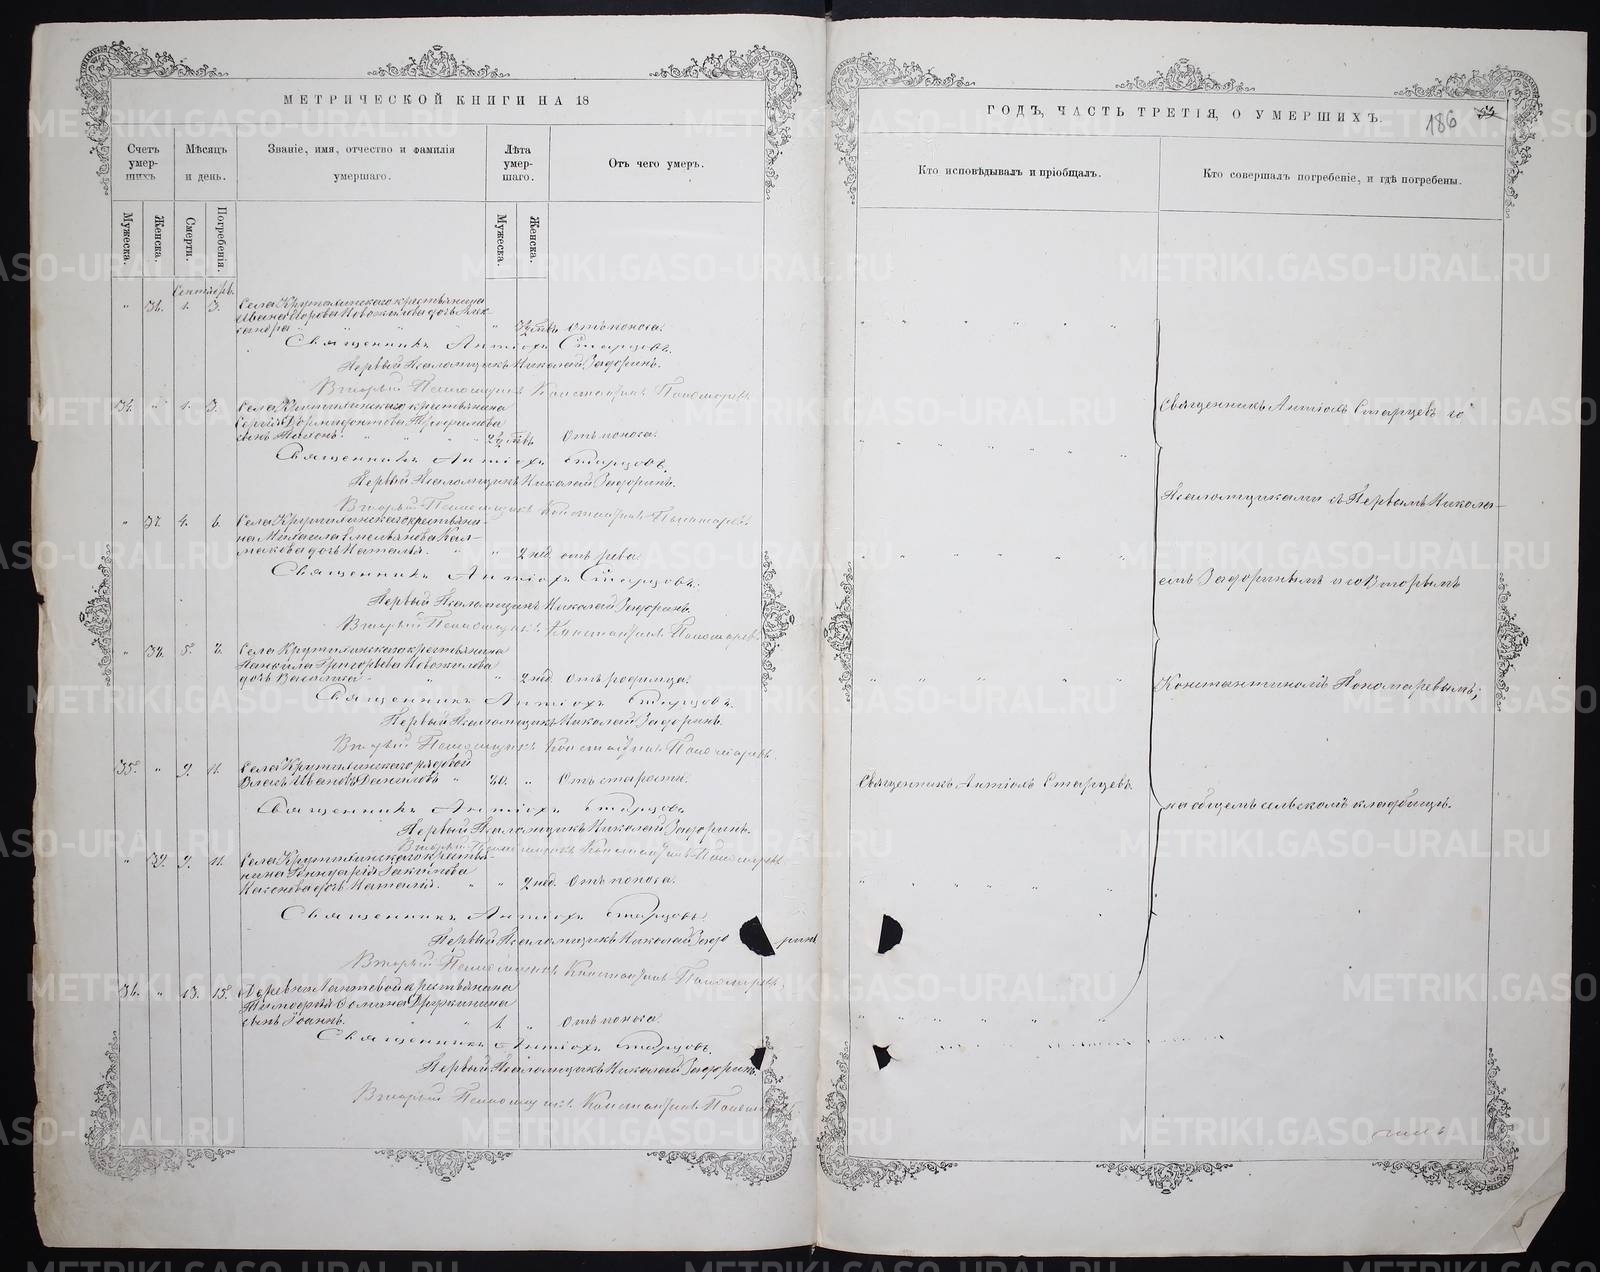 МЕТРИЧЕСКОЙ КНИГИ НА 18
Счетъ умер-шихъ
Мѣсяцъ и день.
Званіе, имя, отчество и фамилія умершаго.
Лѣта умер-шаго.
Отъ чего умеръ.
Мужеска.
Женска.
Смерти.
Погребенія.
Мужеска.
Женска.
Сентябрь.
36. 1. 3. Села Крутихинскаго крестьянина
дочь Алек-
сандра отъ поноса.
Священникъ Антіохъ Старцовъ.
Первый Псаломщикъ Николай Задоринъ.
Второй Псаломщикъ Константинъ Пономаревъ
34. 1. 3. Села Крутихинскаго крестьянина
сынъ отъ поноса.
Священникъ Антіохъ Старцовъ.
Первый Псаломщикъ Николай Задоринъ.
Второй Псаломщикъ Константинъ Пономаревъ
37. 4. 6. Села Крутихинскаго крестьяни-
на Михаила Емельянова Кал-
макова дочь Наталья. 2 нед. отъ рева.
Священникъ Антіохъ Старцовъ.
Первый Псаломщикъ Николай Задоринъ.
Второй Псаломщикъ Константинъ Пономаревъ.
38. 5. 7. Села Крутихинскаго крестьянина
Григорьева Новожилова
дочь Василиса 2 нед. отъ родимца.
Священникъ Антіохъ Старцовъ.
Первый Псаломщикъ Николай Задоринъ.
Второй Псаломщикъ Константинъ Пономаревъ.
35. 9. 11. Села Крутихинскаго рядовой
Ивановъ Даниловъ отъ старости.
Священникъ Антіохъ Старцовъ
Первый Псаломщикъ Николай Задоринъ.
Второй Псаломщикъ Константинъ Пономаревъ
39. 9. 11. Села Крутихинскаго крестья-
нина
дочь Наталія. 2 нед. отъ поноса.
Священникъ Антіохъ Старцовъ.
Первый Псаломщикъ Николай Задоринъ
Второй Псаломщикъ Константинъ Пономаревъ.
36. 13. 15. Деревни крестьянина
сынъ Іоаннъ. отъ поноса.
Священникъ Антіохъ Старцовъ.
Первый Псаломщикъ Николай Задоринъ.
Второй Псаломщикъ Константинъ
ГОДЪ, ЧАСТЬ ТРЕТІЯ, О УМЕРШИХЪ.
186
Кто исповѣдывалъ и пріобщалъ.
Кто совершалъ погребеніе, и гдѣ погребены.
Священникъ Антіохъ Старцевъ
Священникъ Антіохъ Старцевъ со
Псаломщиками съ Первымъ Никола-
емъ Задоринымъ и со Вторымъ
Константиномъ Пономаревымъ;
на общемъ сельскомъ кладбищѣ.
METRIKI.GASO-URAL.RU